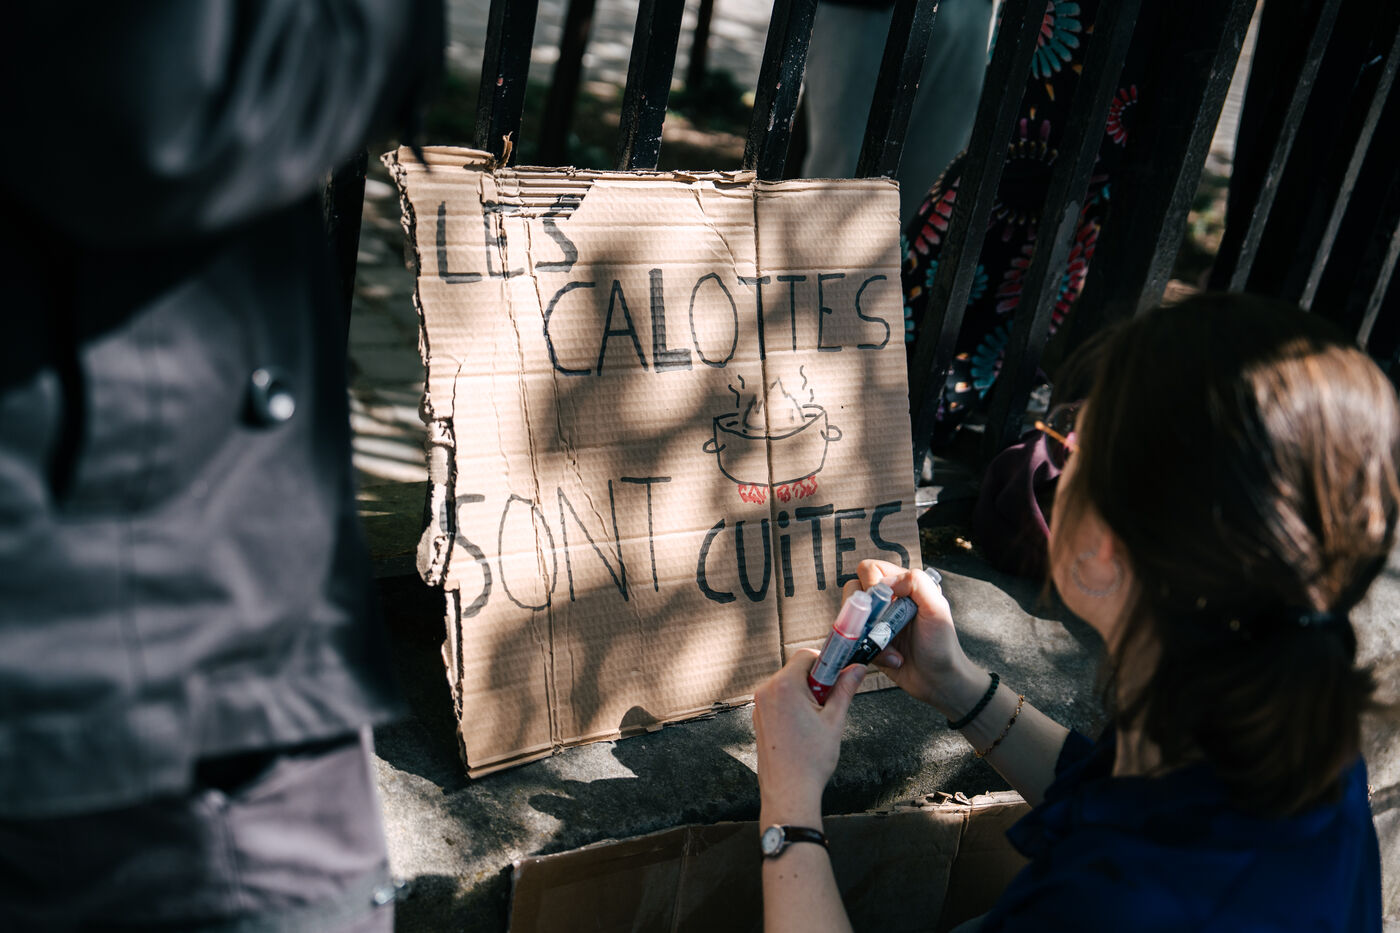 LES
CALOTTES
SONT CUiTES